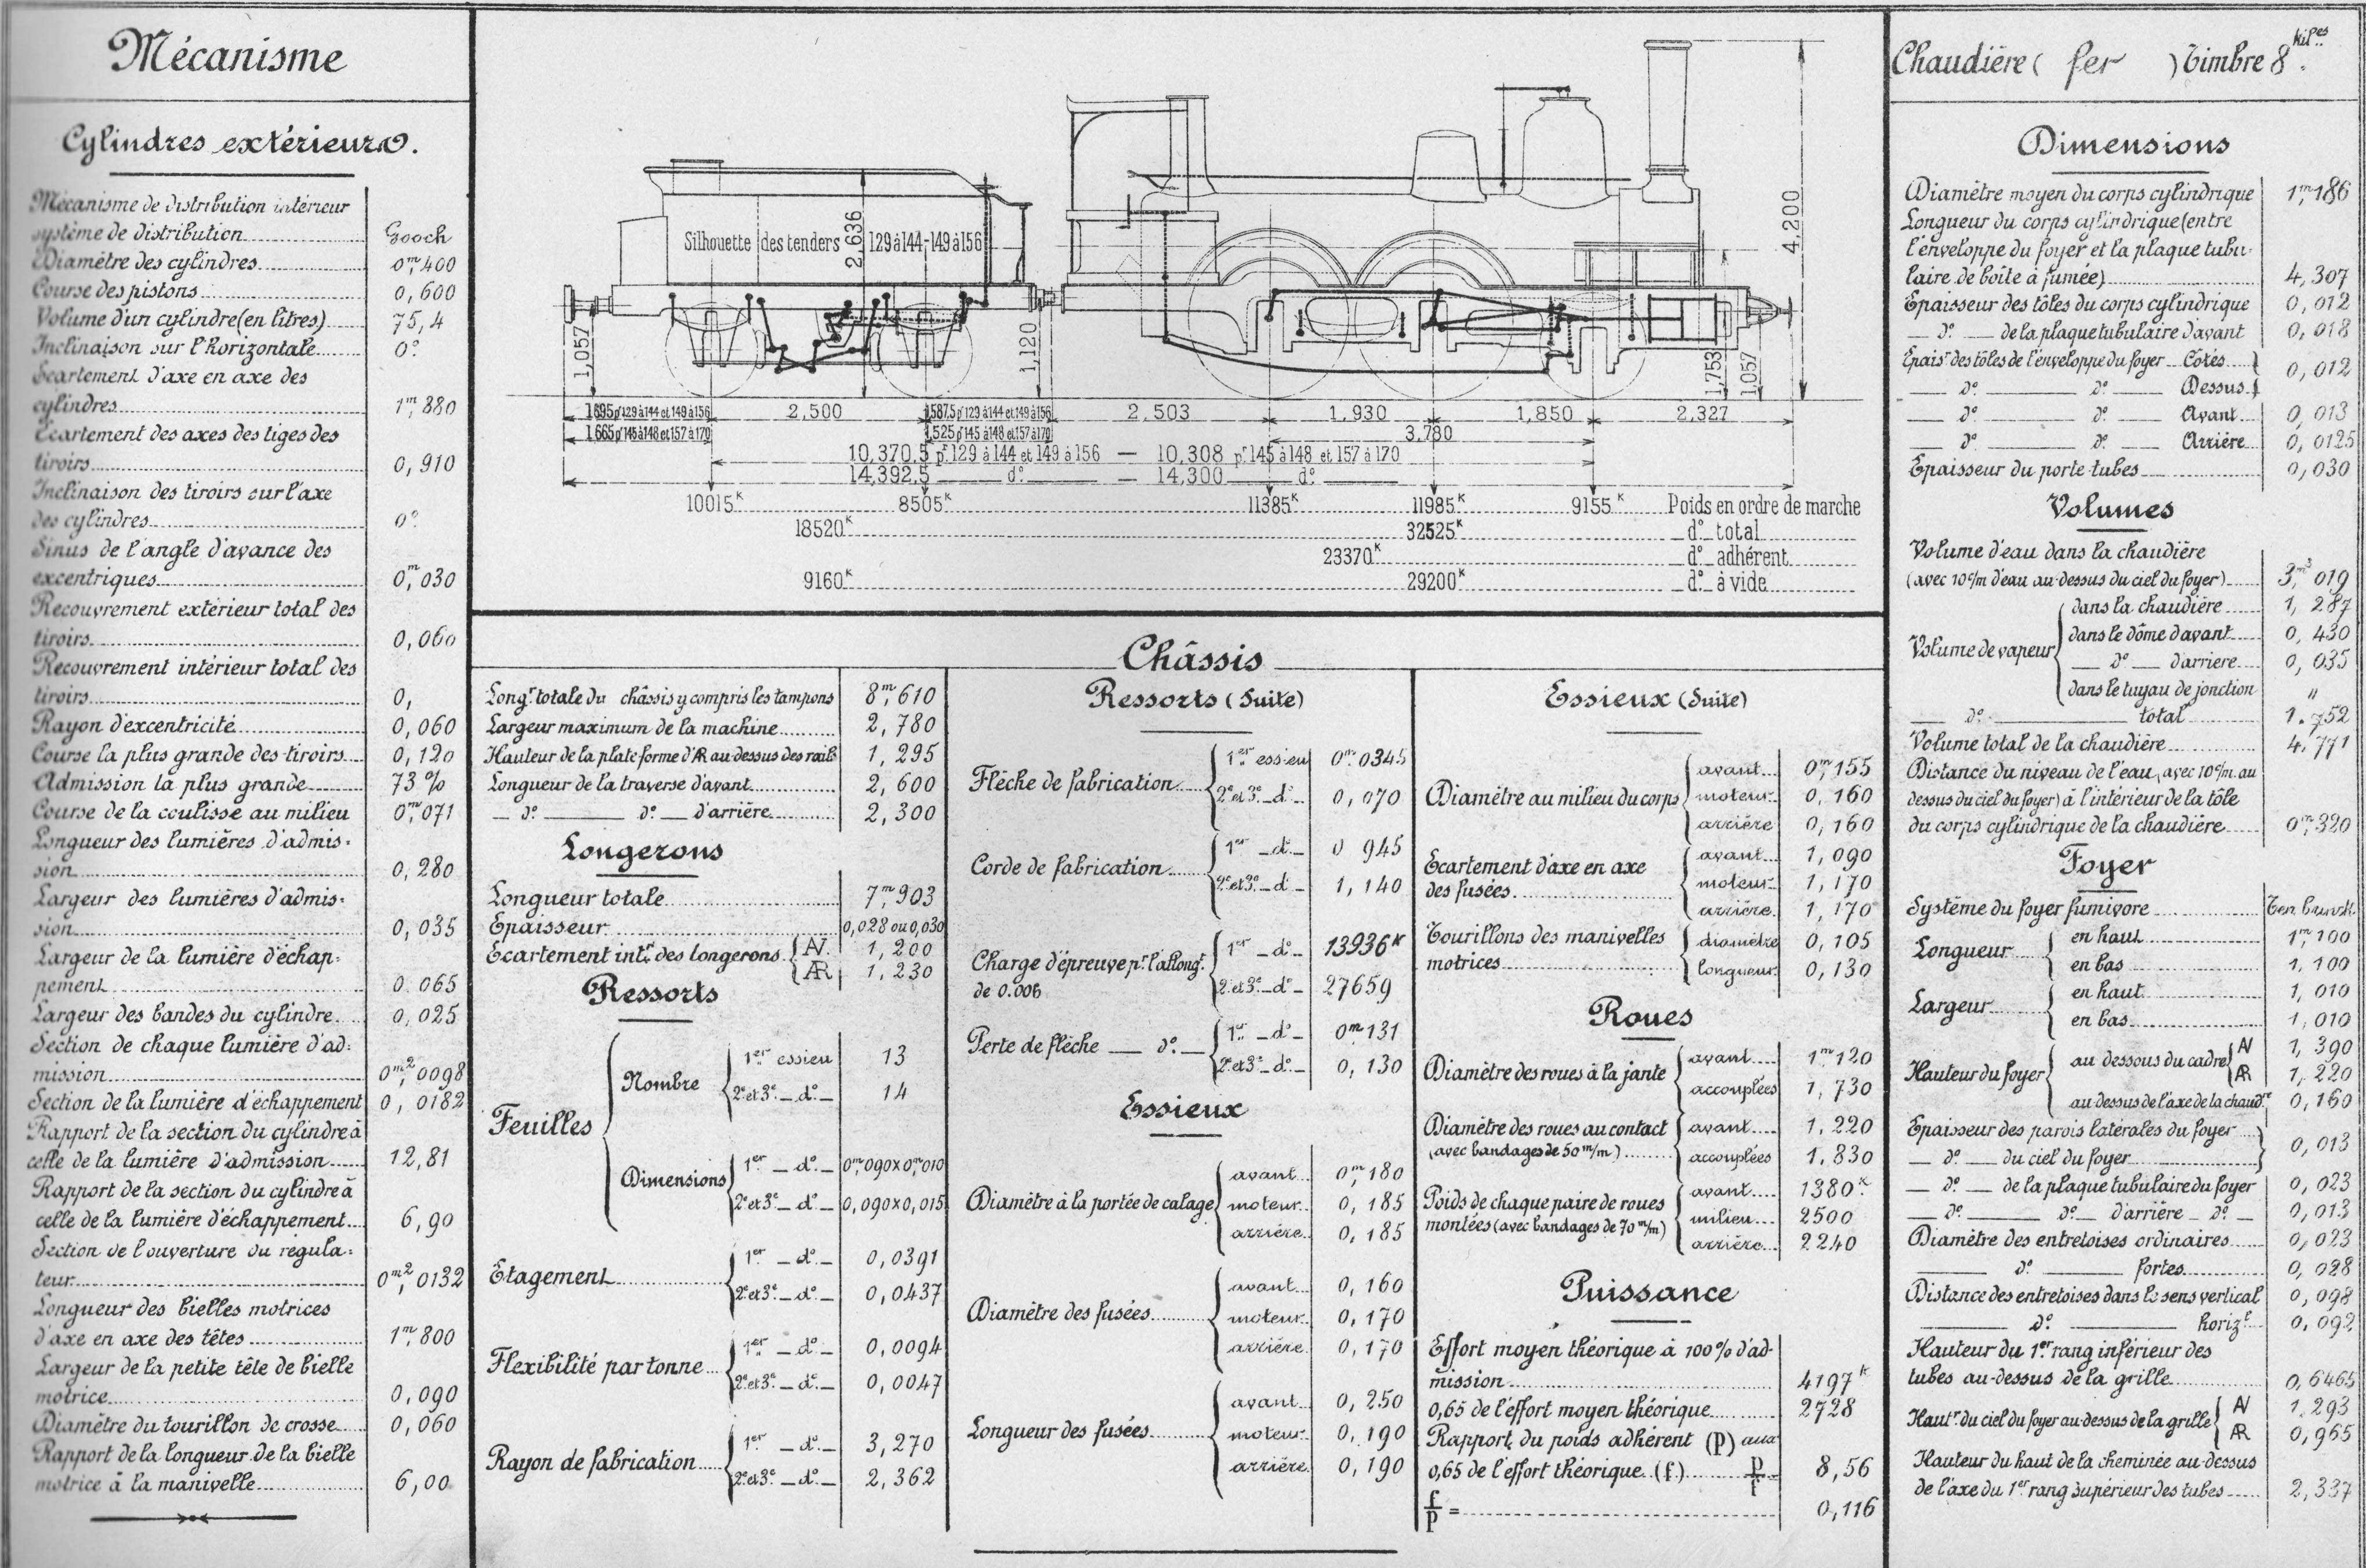 Mécanisme
Cylindres extérieurs.
Mécanisme de distribution intérieur
système de distribution Gooch
Diamètre des cylindres 0m,400
Course des pistons 0,600
Volume d'un cylindre (en litres) 75,4
Inclinaison sur l'horizontale 0°.
Ecartement d'axe en axe des
cylindres 1m,880
Ecartement des axes des tiges des
tiroirs 0,910
Inclinaison des tiroirs sur l'axe
des cylindres 0°
Sinus de l'angle d'avance des
excentriques 0,m030
Recouvrement extérieur total des
tiroirs 0,060
Recouvrement intérieur total des
tiroirs 0,
Rayon d'excentricité 0,060
Course la plus grande des tiroirs 0,120
Admission la plus grande 73 %
Course de la coulisse au milieu 0m,071
Longueur des lumières d'admis-
sion 0,280
Largeur des lumières d'admis-
sion 0,035
Largeur de la lumière d'échap-
pement 0.065
Largeur des bandes du cylindre 0,025
Section de chaque lumière d'ad-
mission 0m²,0098
Section de la lumière d'échappement 0,0182
Rapport de la section du cylindre à
celle de la lumière d'admission 12,81
Rapport de la section du cylindre à
celle de la lumière d'échappement 6,90
Section de l'ouverture du régula-
teur 0m²,0132
Longueur des bielles motrices
d'axe en axe des têtes 1m,800
Largeur de la petite tête de bielle
motrice 0,090
Diamètre du tourillon de crosse 0,060
Rapport de la longueur de la bielle
motrice à la manivelle 6,00
Silhouette des tenders 129 à 144-149 à 156
2,636
4,200
1,057 1,120 1,753 1,057
1695 pr 129 à 144 et 149 à 156 2,500 1,587.5 pr 129 à 144 et 149 à 156 2,503 1,930 1,850 2,327
1,665 pr 145 à 148 et 157 à 170 1,525 pr 145 à 148 et 157 à 170 3,780
10,370.5 pr 129 à 144 et 149 à 156 — 10,308 pr 145 à 148 et 157 à 170
14,392.5 d° — 14,300 d°
10015K 8505K 11385K 11985K 9155K Poids en ordre de marche
18520K 32525K d° total
23370K d° adhérent
9160K 29200K d° à vide
Châssis
Longr totale du châssis y compris les tampons 8m,610
Largeur maximum de la machine 2,780
Hauteur de la plateforme d'AR au-dessus des rails 1,295
Longueur de la traverse d'avant 2,600
— d° — d° — d'arrière 2,300
Longerons
Longueur totale 7m,903
Epaisseur 0,028 ou 0,030
Ecartement intr des longerons { AV. 1,200
AR 1,230
Ressorts
Feuilles { Nombre { 1er essieu 13
2e et 3e — d° — 14
Dimensions { 1er — d° — 0m,090x0m,010
2e et 3e — d° — 0,090x0,015
Etagement { 1er — d° — 0,0391
2e et 3e — d° — 0,0437
Flexibilité par tonne { 1er — d° — 0,0094
2e et 3e — d° — 0,0047
Rayon de fabrication { 1er — d° — 3,270
2e et 3e — d° — 2,362
Ressorts (Suite)
Flèche de fabrication { 1er essieu 0m,0345
2e et 3e — d° 0,070
Corde de fabrication { 1er — d° — 0 945
2e et 3e — d° 1,140
Charge d'épreuve pr l'allongt { 1er — d° — 13936K
de 0.006 2e et 3e — d° — 27659
Perte de flèche — d° — { 1er — d° — 0m131
2e et 3e — d° — 0,130
Essieux
Diamètre à la portée de calage { avant 0m,180
moteur 0,185
arrière 0,185
Diamètre des fusées { avant 0,160
moteur 0,170
arrière 0,170
Longueur des fusées { avant 0,250
moteur 0,190
arrière 0,190
Essieux (Suite)
Diamètre au milieu du corps { avant 0m,155
moteur 0,160
arrière 0,160
Ecartement d'axe en axe des fusées { avant 1,090
moteur 1,170
arrière 1,170
Tourillons des manivelles { diamètre 0,105
motrices longueur 0,130
Roues
Diamètre des roues à la jante { avant 1m,120
accouplées 1,730
Diamètre des roues au contact { avant 1,220
(avec bandages de 50 m/m) accouplées 1,830
Poids de chaque paire de roues { avant 1380K
montées (avec bandages de 70 m/m) milieu 2500
arrière 2240
Puissance
Effort moyen théorique à 100 % d'ad-
mission 4197K
0,65 de l'effort moyen théorique 2728
Rapport du poids adhérent (P) aux
0,65 de l'effort théorique (f) P/f 8,56
f/P = 0,116
Chaudière ( fer ) Timbre 8 kilos.
Dimensions
Diamètre moyen du corps cylindrique 1m,186
Longueur du corps cylindrique (entre
l'enveloppe du foyer et la plaque tubu-
laire de boîte à fumée) 4,307
Epaisseur des tôles du corps cylindrique 0,012
— d° — de la plaque tubulaire d'avant 0,018
Epaisr des tôles de l'enveloppe du foyer Côtés } 0,012
— d° — d° — Dessus }
— d° — d° — Avant 0,013
— d° — d° — Arrière 0,0125
Epaisseur du porte-tubes 0,030
Volumes
Volume d'eau dans la chaudière
(avec 10 c/m d'eau au-dessus du ciel du foyer) 3,m3019
Volume de vapeur { dans la chaudière 1,287
dans le dôme d'avant 0,430
— d° — d'arrière 0,035
dans le tuyau de jonction "
— d° — total 1.752
Volume total de la chaudière 4,771
Distance du niveau de l'eau (avec 10 c/m au
dessus du ciel du foyer) à l'intérieur de la tôle
du corps cylindrique de la chaudière 0m,320
Foyer
Système du foyer fumivore
Longueur { en haut 1m,100
en bas 1,100
Largeur { en haut 1,010
en bas 1,010
Hauteur du foyer { au dessous du cadre { AV 1,390
AR 1,220
au dessus de l'axe de la chaudre 0,160
Epaisseur des parois latérales du foyer } 0,013
— d° — du ciel du foyer }
— d° — de la plaque tubulaire du foyer 0,023
— d° — d° — d'arrière — d° — 0,013
Diamètre des entretoises ordinaires 0,023
— d° — fortes 0,028
Distance des entretoises dans le sens vertical 0,098
— d° — horizt 0,092
Hauteur du 1er rang inférieur des
tubes au-dessus de la grille 0,6465
Hautr du ciel du foyer au-dessus de la grille { AV 1,293
AR 0,965
Hauteur du haut de la cheminée au-dessus
de l'axe du 1er rang supérieur des tubes 2,337